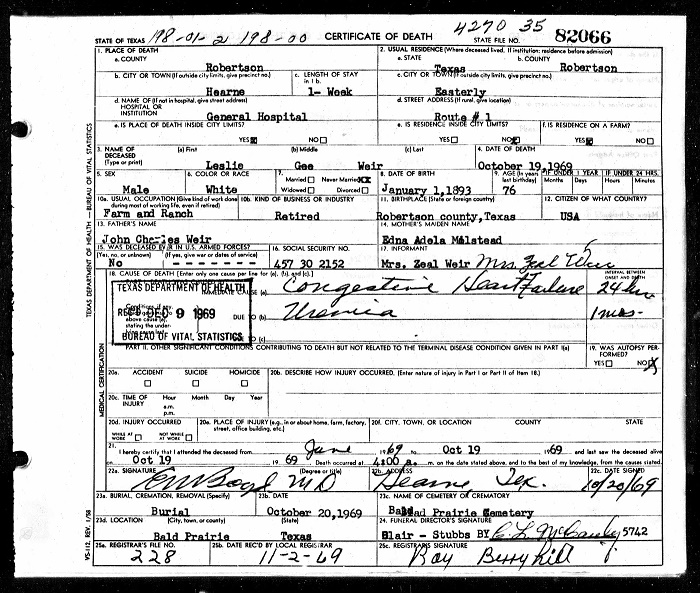 198-01-2 198-00 4270 35
STATE OF TEXAS CERTIFICATE OF DEATH STATE FILE NO. 82066
1. PLACE OF DEATH 2. USUAL RESIDENCE (Where deceased lived. If institution: residence before admission)
a. COUNTY a. STATE b. COUNTY
Robertson Texas Robertson
b. CITY OR TOWN (If outside city limits, give precinct no.) c. LENGTH OF STAY in 1 b. c. CITY OR TOWN (If outside city limits, give precinct no.)
Hearne 1- Week Easterly
d. NAME OF (If not in hospital, give street address) HOSPITAL OR INSTITUTION d. STREET ADDRESS (If rural, give location)
General Hospital Route # 1
e. IS PLACE OF DEATH INSIDE CITY LIMITS? e. IS RESIDENCE INSIDE CITY LIMITS? f. IS RESIDENCE ON A FARM?
YES NO YES NO YES NO
3. NAME OF DECEASED (Type or print) (a) First (b) Middle (c) Last 4. DATE OF DEATH
Leslie Gee Weir October 19,1969
5. SEX 6. COLOR OR RACE 7. Married Never Married Widowed Divorced 8. DATE OF BIRTH 9. AGE (In years last birthday) IF UNDER 1 YEAR Months Days IF UNDER 24 HRS. Hours Minutes
Male White January 1,1893 76
10a. USUAL OCCUPATION (Give kind of work done during most of working life, even if retired) 10b. KIND OF BUSINESS OR INDUSTRY 11. BIRTHPLACE (State or foreign country) 12. CITIZEN OF WHAT COUNTRY?
Farm and Ranch Retired Robertson county,Texas USA
13. FATHER'S NAME 14. MOTHER'S MAIDEN NAME
John Charles Weir Edna Adela Milstead
15. WAS DECEASED EVER IN U.S. ARMED FORCES? (Yes, no, or unknown) (If yes, give war or dates of service) 16. SOCIAL SECURITY NO. 17. INFORMANT
No - - - - - - 457 30 2152 Mrs. Zeal Weir Mrs. Zeal Weir
18. CAUSE OF DEATH [Enter only one cause per line for (a), (b), and (c).] INTERVAL BETWEEN ONSET AND DEATH
IMMEDIATE CAUSE (a) Congestive Heart Failure 24 hrs
TEXAS DEPARTMENT OF HEALTH
REC'D DEC 9 1969
BUREAU OF VITAL STATISTICS
DUE TO (b) Uremia 1 mos-
stating the underlying cause last. DUE TO (c)
PART II. OTHER SIGNIFICANT CONDITIONS CONTRIBUTING TO DEATH BUT NOT RELATED TO THE TERMINAL DISEASE CONDITION GIVEN IN PART I(a) 19. WAS AUTOPSY PERFORMED?
YES NO
20a. ACCIDENT SUICIDE HOMICIDE 20b. DESCRIBE HOW INJURY OCCURRED. (Enter nature of injury in Part I or Part II of item 18.)
20c. TIME OF INJURY Hour a.m. p.m. Month Day Year
20d. INJURY OCCURRED WHILE AT WORK NOT WHILE AT WORK 20e. PLACE OF INJURY (e.g., in or about home, farm, factory, street, office building, etc.) 20f. CITY, TOWN, OR LOCATION COUNTY STATE
21. I hereby certify that I attended the deceased from June 1969 to Oct 19 1969 and last saw the deceased alive
on Oct 19 1969 Death occurred at 4:00 a. m. on the date stated above, and to the best of my knowledge, from the causes stated.
22a. SIGNATURE (Degree or title) 22b. ADDRESS 22c. DATE SIGNED
Boyd MD Hearne Tex. 10/20/69
23a. BURIAL, CREMATION, REMOVAL (Specify) 23b. DATE 23c. NAME OF CEMETERY OR CREMATORY
Burial October 20,1969 Bald Prairie Cemetery
23d. LOCATION (City, town, or county) (State) 24. FUNERAL DIRECTOR'S SIGNATURE
Bald Prairie Texas Blair - Stubbs BY 5742
25a. REGISTRAR'S FILE NO. 25b. DATE REC'D BY LOCAL REGISTRAR 25c. REGISTRAR'S SIGNATURE
228 11-2-69 Ray Berryhill
TEXAS DEPARTMENT OF HEALTH — BUREAU OF VITAL STATISTICS
MEDICAL CERTIFICATION
VS-112 REV. 1/58